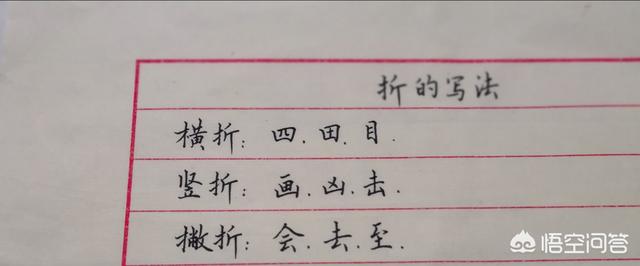 折的写法
横折：四.田.目.
竖折：画.凶.击.
撇折：会.去.至.
悟空问答